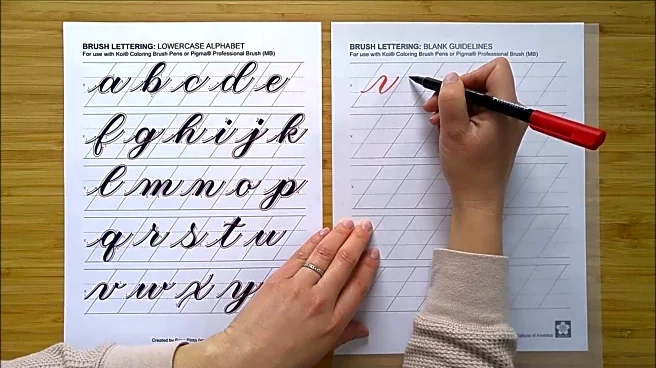 BRUSH LETTERING: LOWERCASE ALPHABET
For use with Koi® Coloring Brush Pens or Pigma® Professional Brush (MB)
a b c d e
f g h i j k
l m n o p
q r s t u
v w x y
Created by
BRUSH LETTERING: BLANK GUIDELINES
For use with Koi® Coloring Brush Pens or Pigma® Professional Brush (MB)
of America